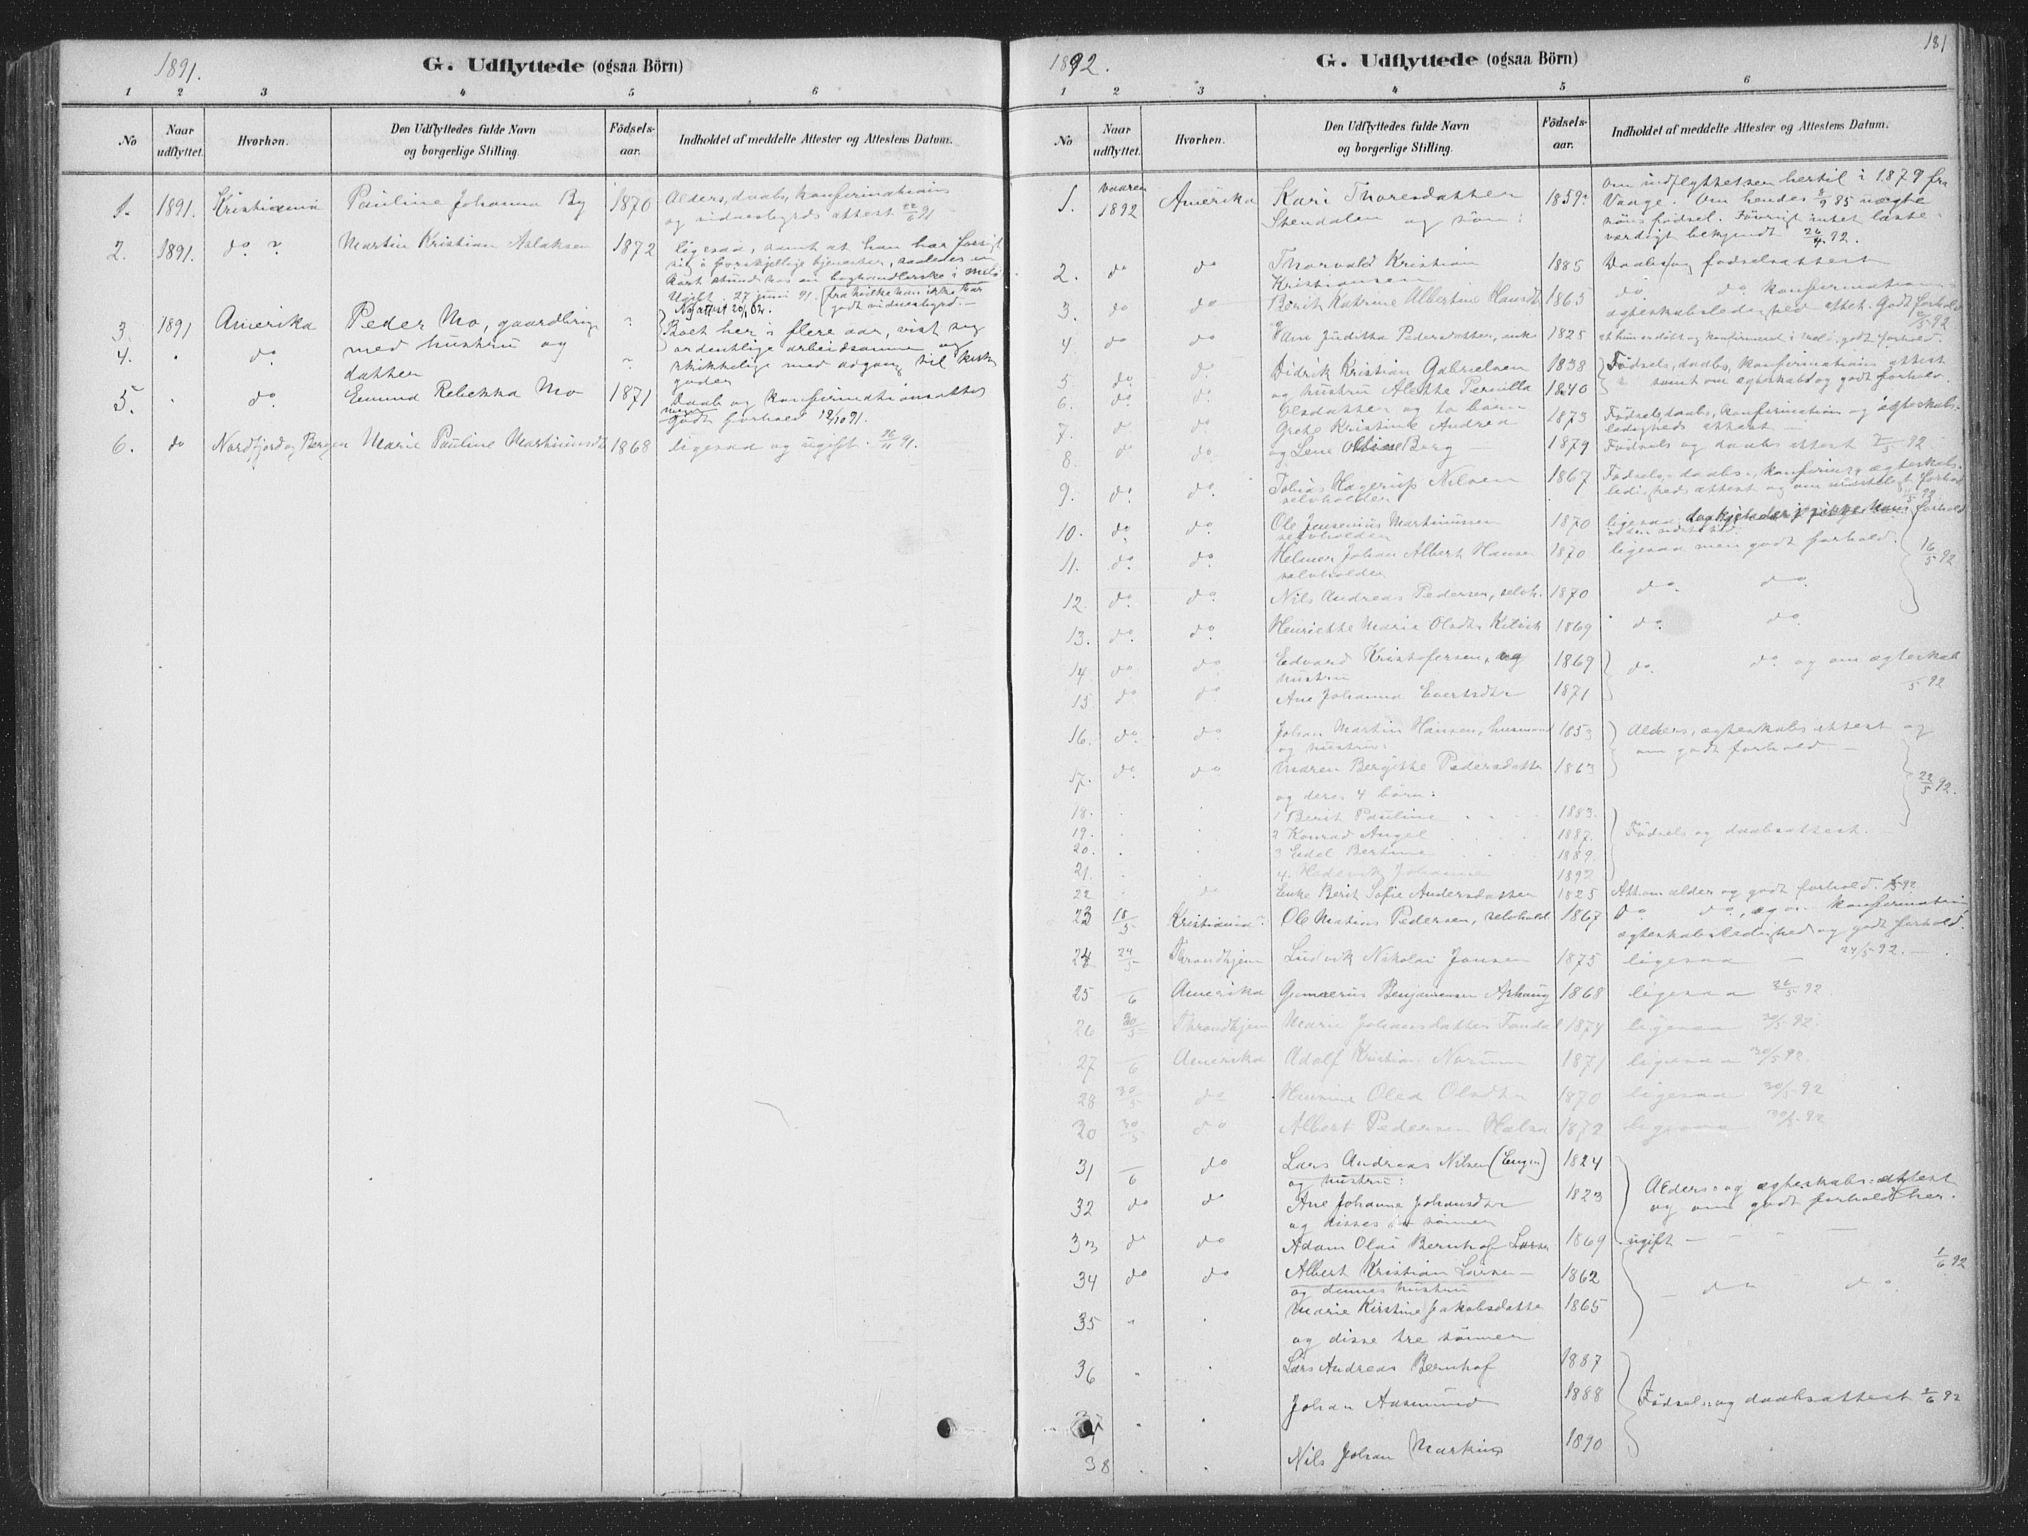 1891.
G. Udflyttede (ogsaa Börn)
1 2 3 4 5 6
No
Naar udflyttet.
Hvorhen.
Den Udflyttedes fulde Navn og borgerlige Stilling.
Födsels-aar.
Indholdet af meddelte Attester og Attestens Datum.
1. 1891. Kristiania Pauline Johanna By 1870 Alders, daabs, konfirmations
og vidnesbyrds attest 22/5 91.
2. 1891. do Martin Kristian Aslaksen 1872 ligesaa, samt at han har forsøgt
sig i forskjellige tjenester, saaledes en
kort stund hos en boghandlerske i
Ugift. 27 juni 91. (fra hvilke han ikke har
godt vidnesbyrd. —
3. 1891 Amerika Peder Mo, gaardbrug " Boet her i flere aar, vist sig
4. " do med hustru og " ordentlige arbeidsomme og
datter skikkelige med adgang til kirkens
goder
5. " do Emund Rebekka Mo 1871 Daab og konfirmationsattest
godt forhold 12/10 91.
6. do Nordfjord og Bergen Marie Pauline Martinusdt 1868 ligesaa og ugift 91.
1892.
G. Udflyttede (ogsaa Börn)
181
1 2 3 4 5 6
No
Naar udflyttet.
Hvorhen.
Den Udflyttedes fulde Navn og borgerlige Stilling.
Födsels-aar.
Indholdet af meddelte Attester og Attestens Datum.
1. vaaren 1892 Amerika Kari Thoresdatter 1859 om indflyttelsen hertil i 1879 fra
Stendalen og søn: Vaage. Om hendes 85 uægte
søns fødsel. Forøvrigt intet laste-
værdigt bekjendt 26/4 92.
2. do do Thorvald Kristian 1885 Daabs og fødselsattest
Kristiansen
3. do do Berit Katrine Albertine Hansdt 1865 do. do konfirmations
ægteskabsledighed attest. Godt forhold
4 do do Juditha Pedersdatter, enke 1825 at hun er døbt og konfirmeret i godt forhold.
5 do. do Didrik Kristian Gabrielsen 1838 Fødsels, daabs, konfirmations attest
6. do. do. og hustru Alette Pernilla 1840 samt om ægteskab og godt forhold.
Olsdatter og to børn
7. do do. Grete Kristine Andrea 1873 Fødsels, daabs, konfirmation og ægteskabs-
ledigheds attest —
8. do do. og Lene Oline Berg — 1879 Fødsels og daabs attest 92
9. do. do. Tobias Hagerup Nilsen 1867 Fødsels, daabs, konfirm. og ægteskabs-
selvholder ledigheds attest og om forhold
10. do. do. Ole Jensenius Martinussen 1870 ligesaa forhold
selvholder
11. do. do. Helmer Johan Albert Hansen 1870 ligesaa men godt forhold. 16/5 92
selvholder
12. do. do. Nils Andreas Pedersen, selvh. 1870 do do.
13. do. do. Henriette Marie Olsdtr 1869 do. do.
14. do do. Edvard Kristofersen, og 1869 do. do. og om ægteskab
hustru
15. do do Ane Johanna Evertsdtr 1871 /5 92
16. do. do. Johan Martin Hansen, husmand 1853 Alders, ægteskabs attest og
og hustru: om godt forhold —
17. do. do Maren Bergitte Pedersdatter 1863 22/5 92.
og deres 4 børn:
18. 1 Berit Pauline 1883.
19. 2 Konrad Angel 1887. Fødsels og daabsattest. —
20. 3 Edel Bertine 1889.
21. 4. Hedevik Johanne 1892
22 do Enke Berit Sofie Andersdatter 1825 Att om alder og godt forhold. 92
23 18/5 Kristiania Ole Matias Pedersen, selvhold 1867 do do, og om konfirmation,
ægteskabsledighed og godt forhold.
24 24/5 Throndhjem Ludvik Nikolai Jansen 1875 ligesaa — 24/5 92. —
25 /6 Amerika Gunnerius Benjaminsen Ashaug 1868 ligesaa 92.
26 30/5 Throndhjem Marie Johansdatter 1874 ligesaa 30/5 92.
27 /6 Amerika Adolf Kristian 1871 ligesaa 30/5 92
28 30/5 do Olea Olsdtr 1870 ligesaa 30/5 92
30 30/5 do Albert Pedersen Halsa 1872 ligesaa 92
31 /6 do Lars Andreas Nilsen (Engen) 1824 Alders- og ægteskabs-attest
og hustru:
32 do do Ane Johanne Johansdtr 1823 og om godt forhold her.
og disses to sønner
33 do do Adam Olai Bernhof Larsen 1869 ugift —
34 do do Albert Kristian Larsen — 1862 do do. 1/6 92
og dennes hustru
35 " Marie Kirstine Jakobsdatter 1865
og disse tre sønner
36 " Lars Andreas Bernhof 1887
37 " Johan Aasmund 1888 Fødsels og daabsattest 92
38 Nils Johan Markus 1890